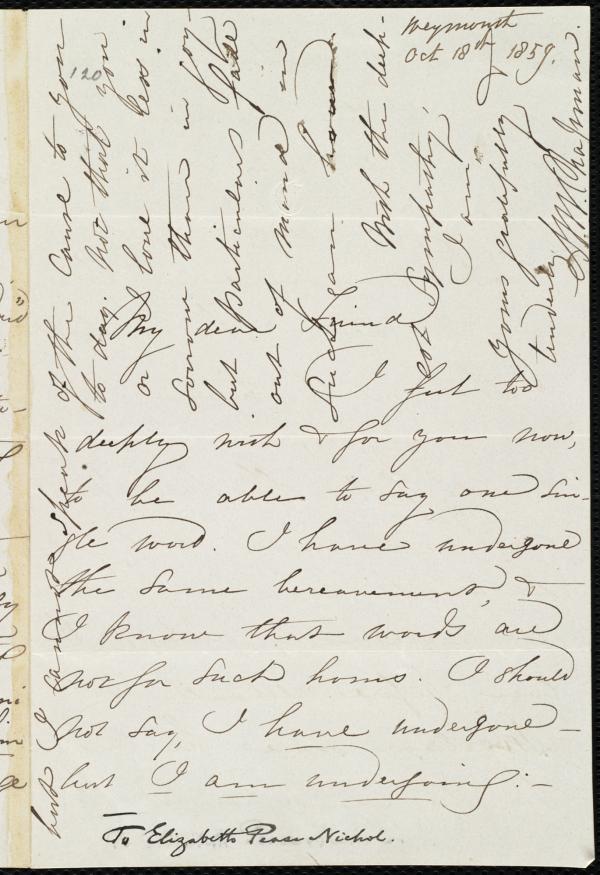 Weymouth
Oct 18th, 1859.
120
My dear Friend
I feel too
deeply with & for you now,
to be able to say one sin-
gle word. I have undergone
the same bereavement, &
I know that words are
not for such hours. I should
not say, I have undergone —
but I am undergoing: —
To Elizabeth Pease Nichol.
but I cannot speak of the Cause to you
to day. Not that you
or I love it less in
sorrow than in joy—
but particulars fade
out of mind in
such an hour
With the deep-
est sympathy,
I am
yours gratefully
tenderly
M. W. Chapman.